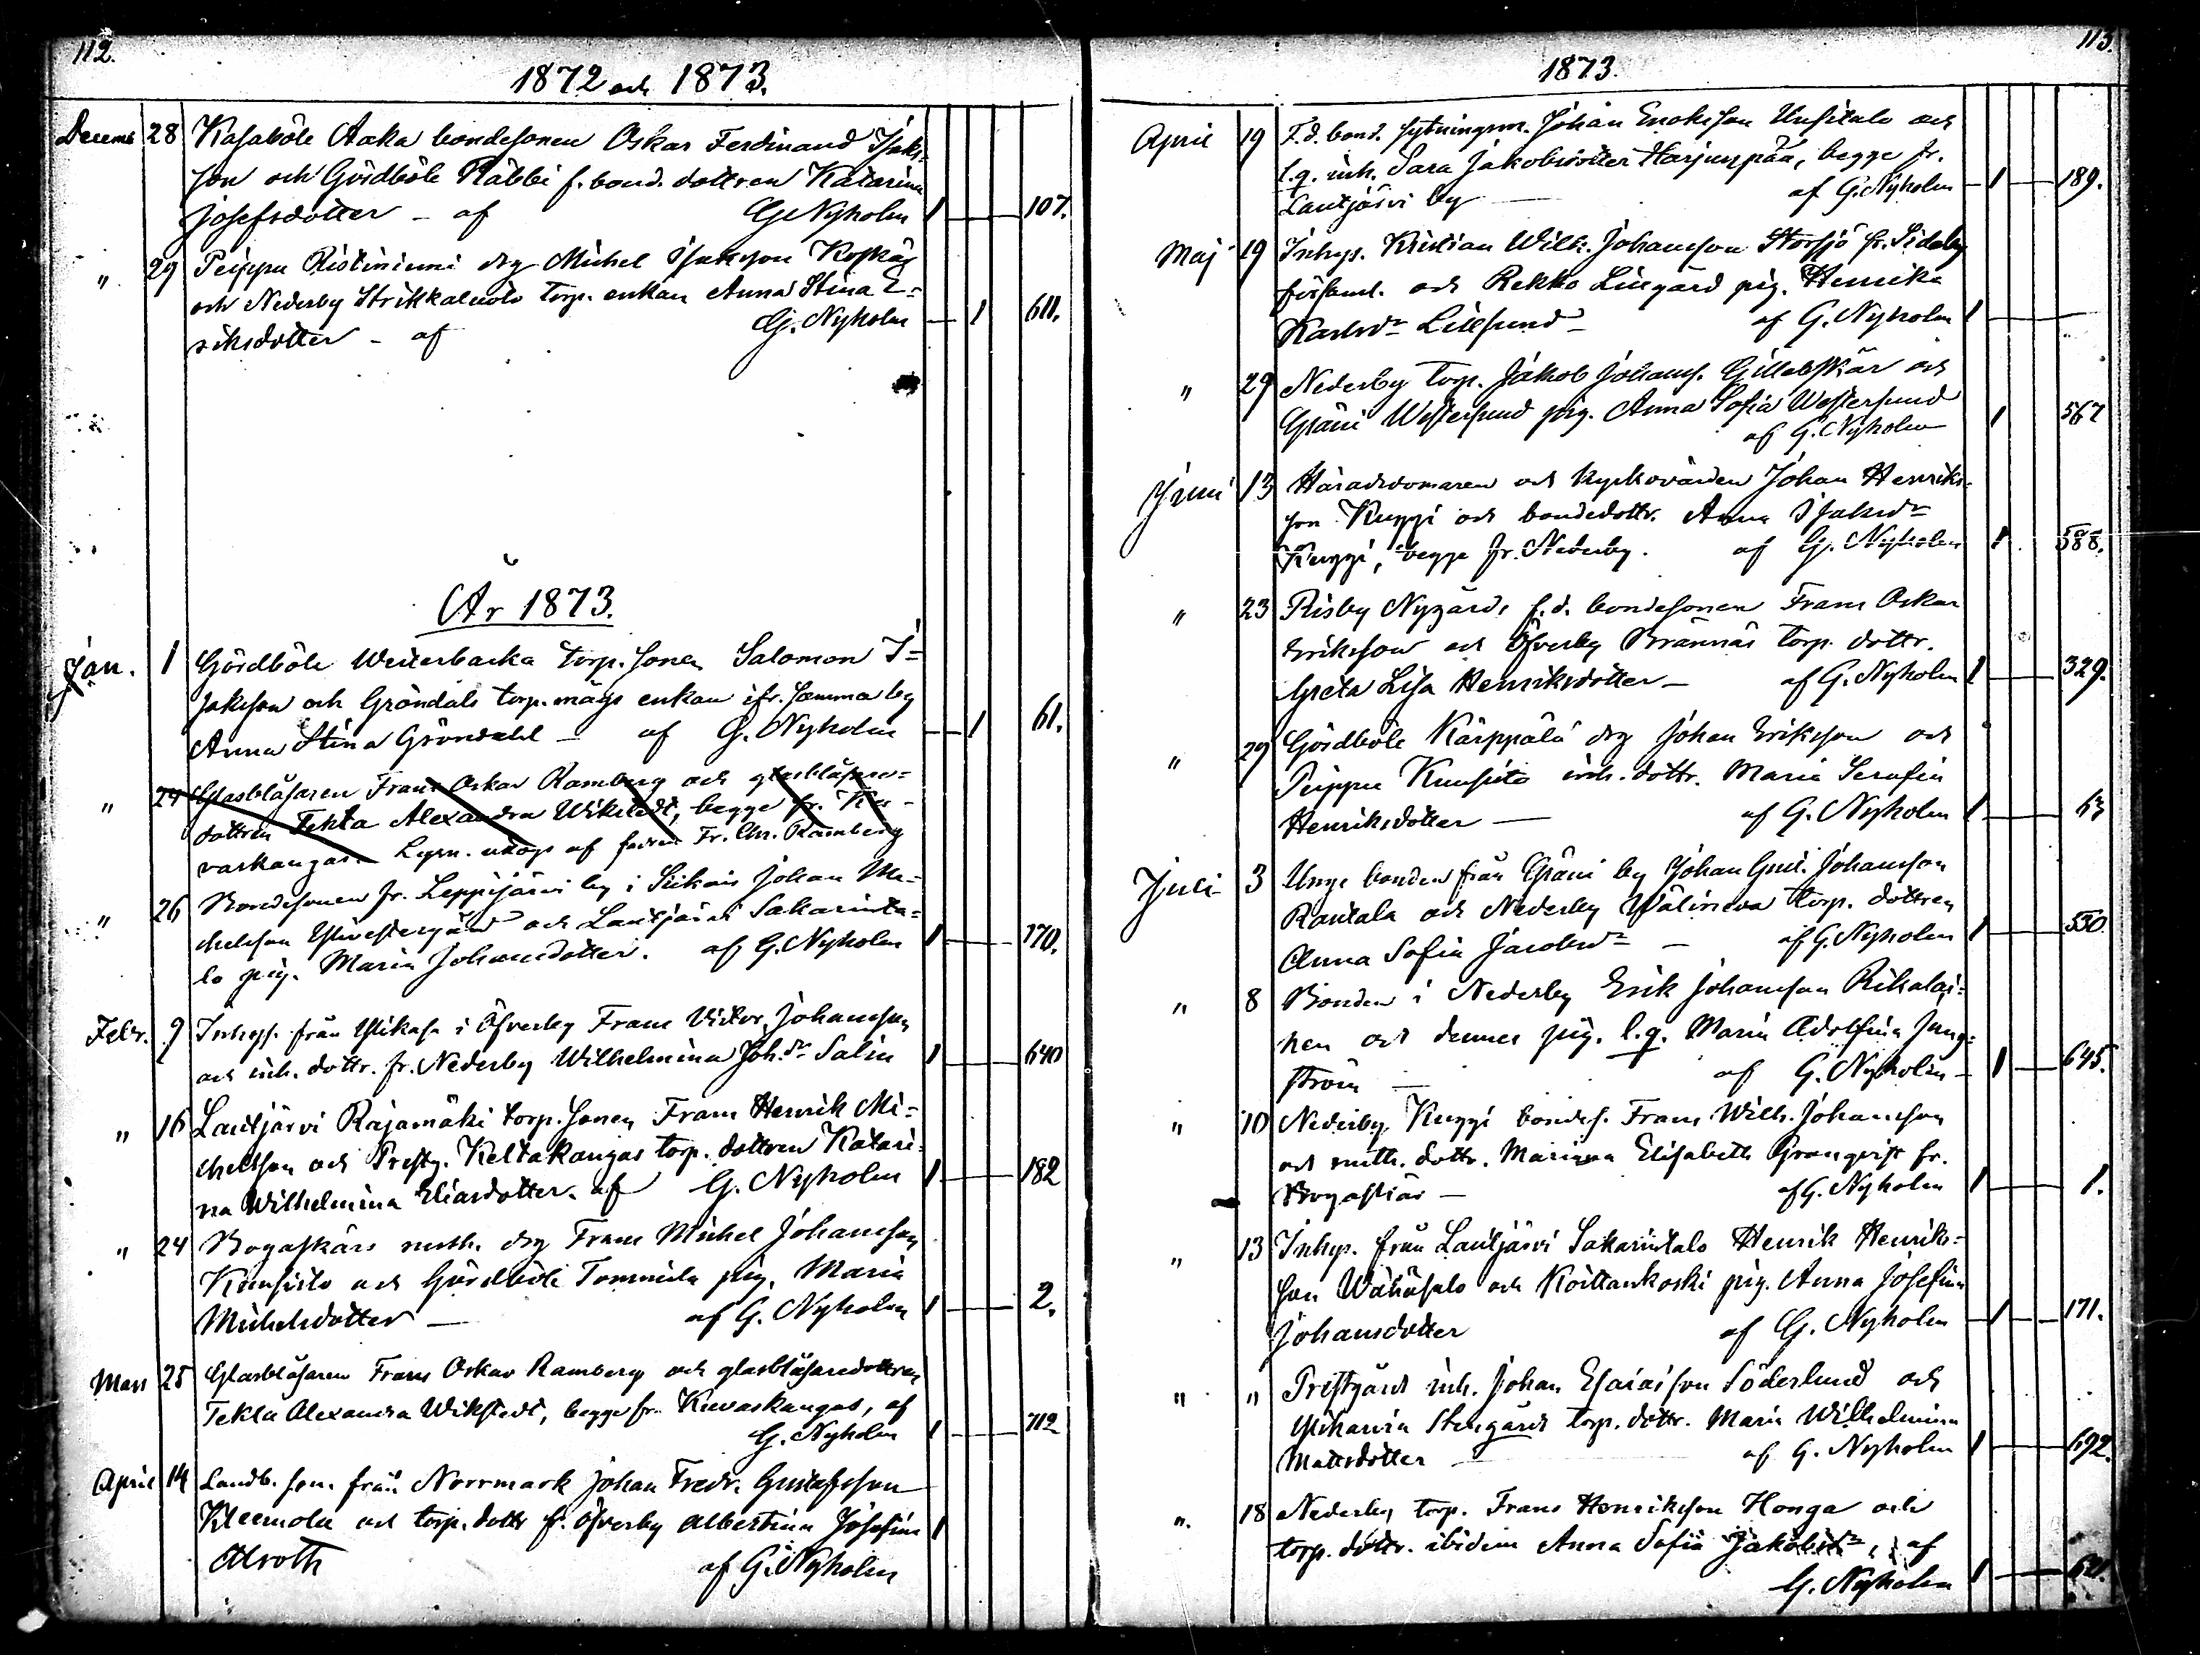 112.
1872 och 1873.
Decemb 28 Kasaböle Aaka bondesonen Oskar Ferdinand Isaks-
son och Gördböle Räbbi f. bond. dottren Katarina
Josefsdotter - af G. Nyholm 1 107.
" 29 Peippu Ristiniemi drg Michel Isaksson Koskäs
och Nederby Strikkaluoto torp. enkan Anna Stina E-
riksdotter - af G. Nyholm 1 611.
År 1873.
Jan. 1 Gördböle Westerbacka torp. sonen Salomon I-
saksson och Gröndals torp. mågs enkan ifr. samma by
Anna Stina Gröndahl - af G. Nyholm 1 61.
" 24 Glasblåsaren Frans Oskar Ramberg och glasblåsare-
dottren Tekla Alexandra Wikstedt, begge fr. Ku-
vaskangas. Lysn. uttogs af fadren Fr. Chr. Ramberg
" 26 Bondesonen fr. Leppijärvi by i Siikais Johan Mi-
chelsson Ylivestergård och Lautjärvi Sakarinta-
lo pig. Maria Johansdotter. af G. Nyholm 1 170.
Febr. 9 Inhys. från Ylikasa i Öfverby Frans Victor Johansson
och inh. dottr. fr. Nederby Wilhelmina Joh.dr Salin 1 640
" 16 Lautjärvi Rajamäki torp. sonen Frans Henrik Mi-
chelsson och Prestg. Keltakangas torp. dottren Katari-
na Wilhelmina Eliasdotter. af G. Nyholm 1 182
" 24 Bogaskärs mtth. drg Frans Michel Johansson
Kunsisto och Gördböle Tommila pig. Maria
Michelsdotter - af G. Nyholm 1 2.
Mars 25 Glasblåsaren Frans Oskar Ramberg och glasblåsaredottren
Tekla Alexandra Wikstedt, begge fr. Kuvaskangas, af
G. Nyholm 1 712
April 14 Landb. son. från Norrmark Johan Fredr. Gustafsson
Kleemola och torp. dottr. fr. Öfverby Albertina Josefina 1
Alroth af G. Nyholm
113.
1873.
April 19 F.d. bond. sytningsm. Johan Enoksson Uusitalo och
l.q. inh. Sara Jakobsdotter Harjunpää, begge fr.
Lautjärvi by - af G. Nyholm 1 189.
Maj 19 Inhys. Kristian Wilh. Johansson Storsjö fr. Sideby
församl. och Rekko Lingård pig. Henrika
Karlsdr Lillsund - af G. Nyholm 1
" 29 Nederby torp. Jakob Johans. Gillotskär och
Gräni Westersund pig. Anna Sofia Westersund
af G. Nyholm 1 567
Juni 13 Häradsdomaren och kyrkovärden Johan Henriks-
son Kuggi och bondedottr. Anna Isaksdr
Kuggi, begge fr. Nederby. af G. Nyholm 1 588.
" 23 Risby Nygårds f.d. bondesonen Frans Oskar
Eriksson och Öfverby Brännäs torp. dottr.
Greta Lisa Henriksdotter - af G. Nyholm 1 329.
" 29 Gördböle Kärppälä drg Johan Eriksson och
Peippu Kunsisto inh. dottr. Maria Serafia
Henriksdotter - af G. Nyholm 1 63
Juli 3 Unge bonden från Gräni by Johan Gust. Johansson
Rautala och Nederby Wälineva torp. dottren
Anna Sofia Jacobsdr - af G. Nyholm 1 550.
" 8 Bonden i Nederby Erik Johansson Rikalai-
nen och dennes pig. l.q. Maria Adolfina Jung-
ström - af G. Nyholm 1 645.
" 10 Nederby Kuggi bondes. Frans Wilh. Johansson
och mtth. dottr. Marina Elisabeth Granqvist fr.
Bogaskär - af G. Nyholm 1 1.
" 13 Inhys. från Lautjärvi Sakarintalo Henrik Henriks-
son Wähäsalo och Koittankoski pig. Anna Josefina
Johansdotter af G. Nyholm 1 171.
" " Prestgårds inh. Johan Esaiasson Söderlund och
Ylikasvia Stengårds torp. dottr. Maria Wilhelmina
Mattsdotter af G. Nyholm 1 692.
" 18 Nederby torp. Frans Henriksson Honga och
torp. dottr. ibidem Anna Sofia Jakobsdr, af
G. Nyholm 1